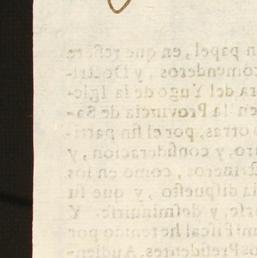 n papel, en que refiere
comenderos, y Doctri-
ra del Yugo de la Igle-
en la Provincia de Sa-
y otras, por el fin parti-
uro, y consideracion, y
Estrueros, como en los
la dispuesto, y que su
orse, y desminuirse. Y
un Fiscal he tenido por
los Presidentes, Audien-